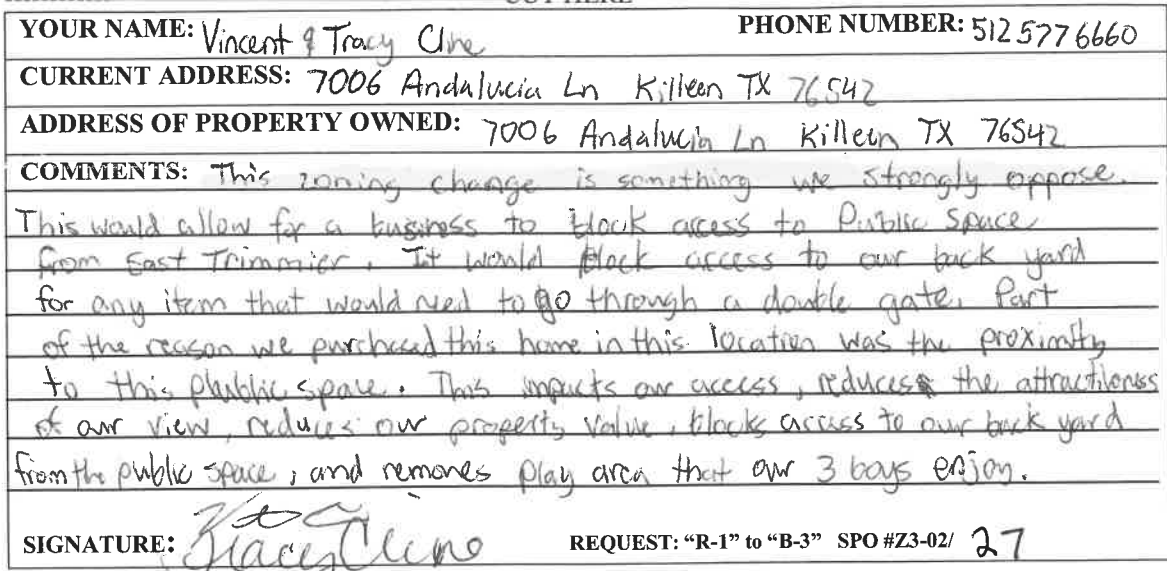 CUT HERE
YOUR NAME: Vincent & Tracy Cline PHONE NUMBER: 512 577 6660
CURRENT ADDRESS: 7006 Andalucia Ln Killeen TX 76542
ADDRESS OF PROPERTY OWNED: 7006 Andalucia Ln Killeen TX 76542
COMMENTS: This zoning change is something we strongly oppose.
This would allow for a business to block access to Public Space
from East Trimmier. It would block access to our back yard
for any item that would need to go through a double gate. Part
of the reason we purchased this home in this location was the proximity
to this plublic space. This impacts our access, reduces the attractiveness
of our view, reduces our property value, blocks access to our back yard
from the public space, and removes play area that our 3 boys enjoy.
SIGNATURE: Tracy Cline REQUEST: “R-1” to “B-3” SPO #Z3-02/ 27